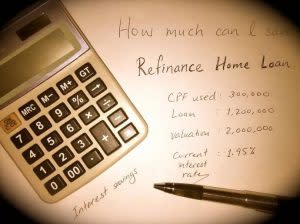 How much can I
Refinance Home Loan
CPF used : 300,000
Loan : 1,200,000
Valuation : 2,000,000
Current : 1.95%
interest
rate
Interest savings
MRC M- M+ GT
7 8 9 %
4 5 6 ×
1 2 3 -
0 00 . + =